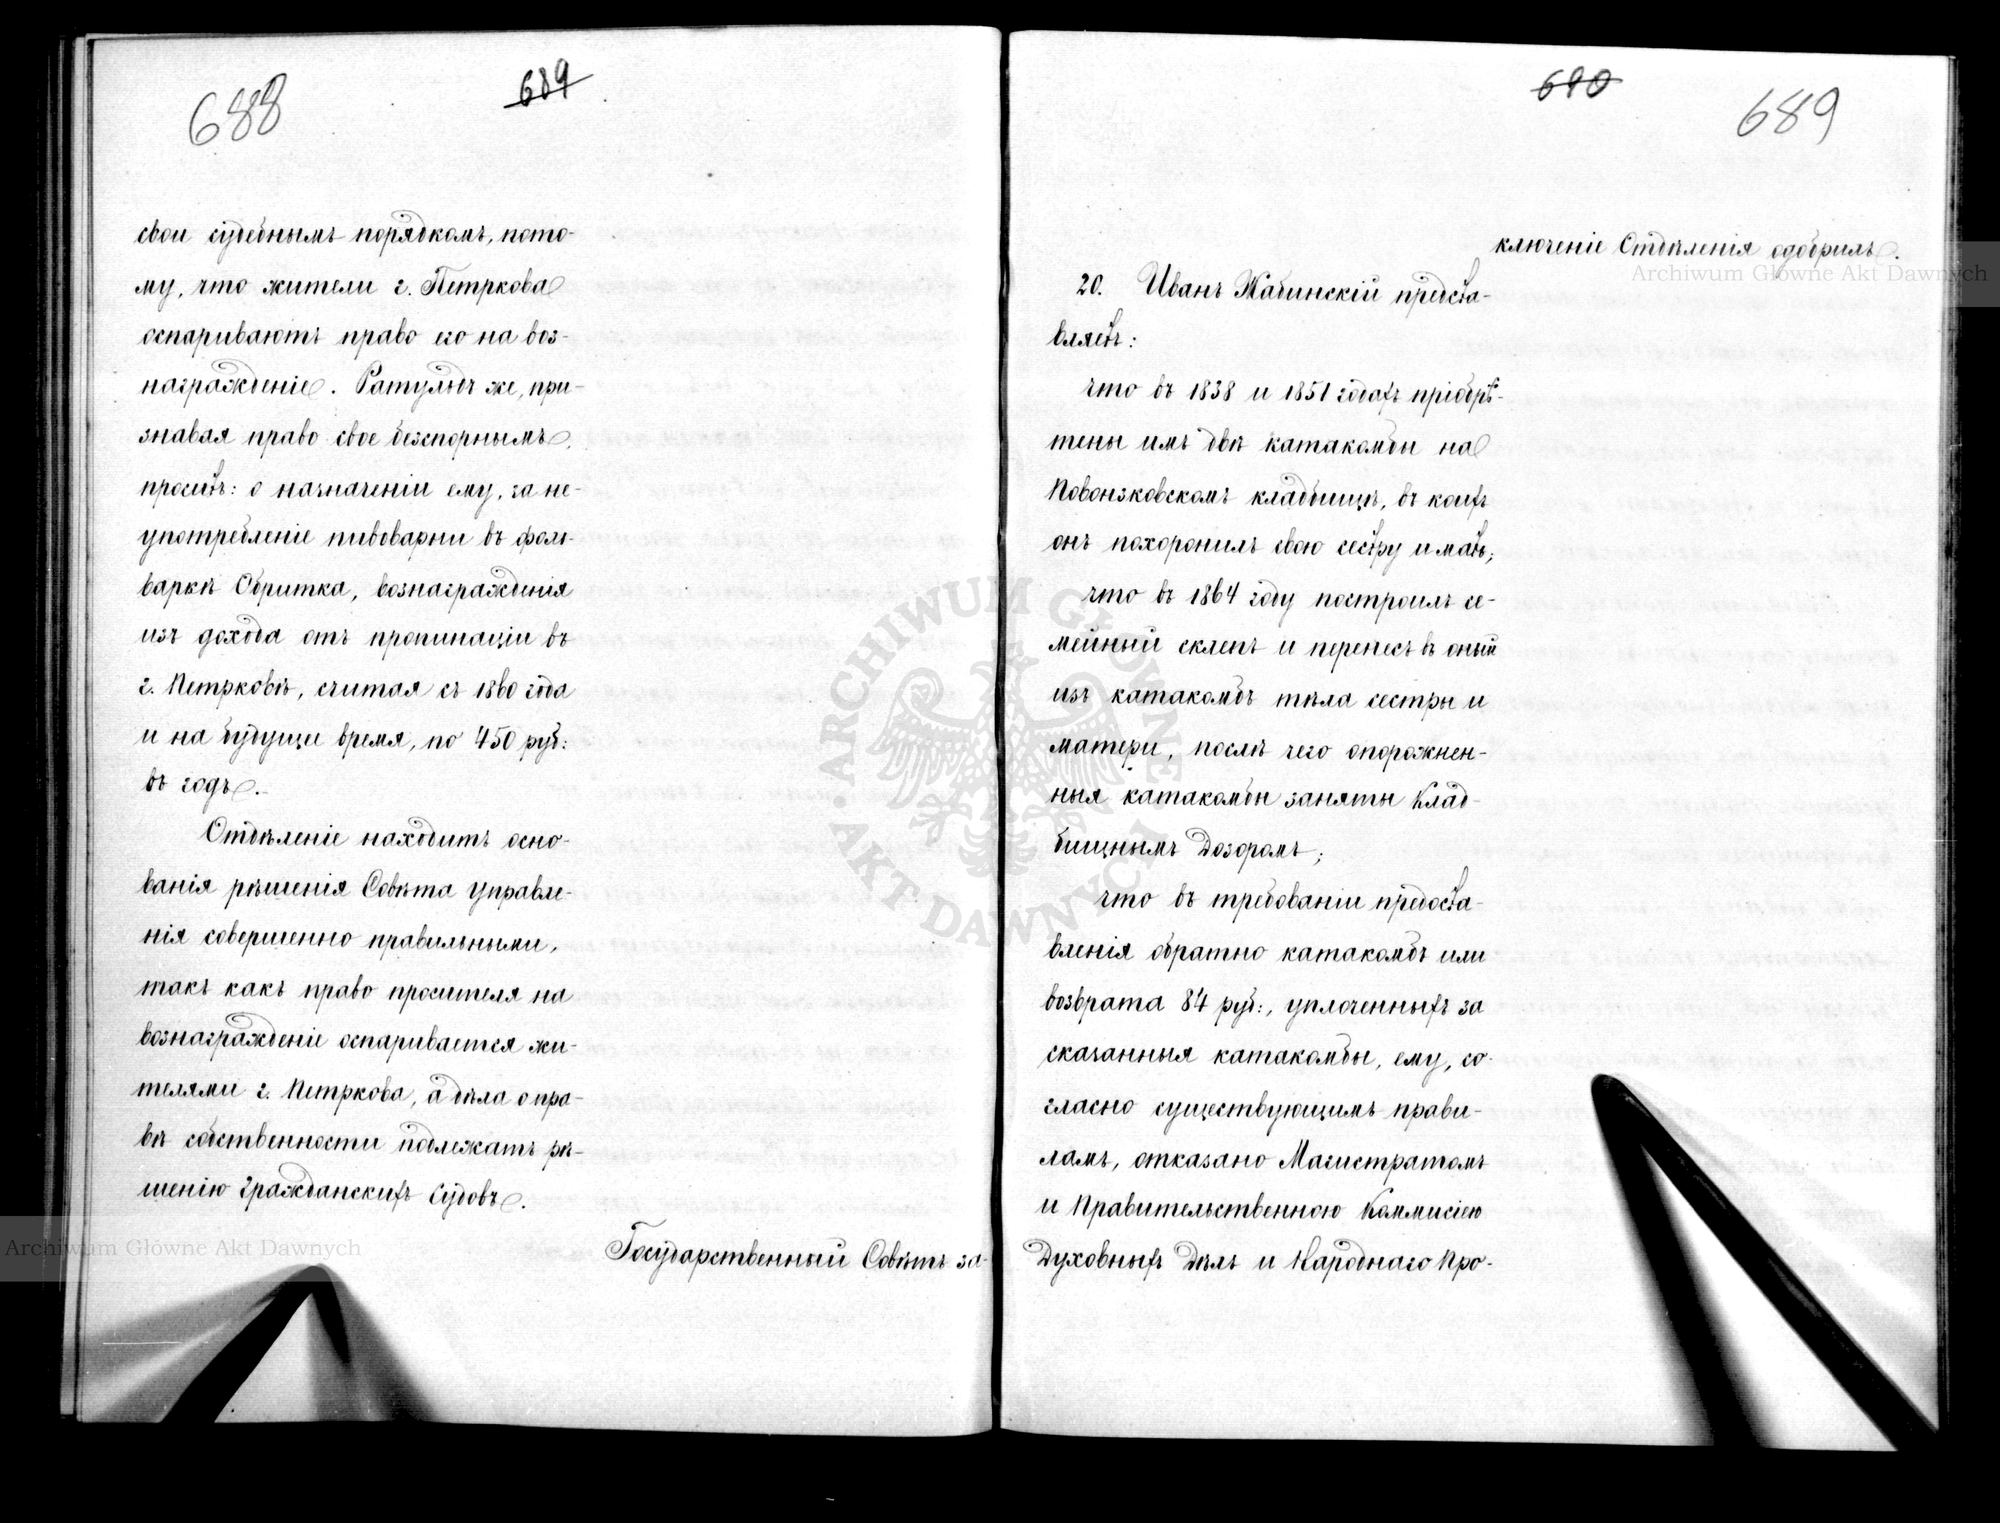 688
689
свои судебнымъ порядкомъ, пото-
му, что жители г. Петркова
оспариваютъ право его на воз-
награжденіе. Ратульдъ же, при-
знавая право свое безспорнымъ,
проситъ: о назначеніи ему, за не-
употребленіе пивоварни въ фоль-
варкѣ Обритка, вознагражденія
изъ дохода отъ пропинаціи въ
г. Петрковѣ, считая съ 1860 года
и на будущее время, по 450 руб:
въ годъ.
Отдѣленіе находитъ осно-
ванія рѣшенія Совѣта Управле-
нія совершенно правильными,
такъ какъ право просителя на
вознагражденіе оспаривается жи-
телями г. Петркова, а дѣла о пра-
вѣ собственности подлежатъ рѣ-
шенію Гражданскихъ Судовъ.
Государственный Совѣтъ за-
690
689
ключеніе Отдѣленія одобрилъ.
20. Иванъ Жабинскій предста-
вляетъ:
что въ 1838 и 1851 годахъ пріобрѣ-
тены имъ двѣ катакомбы на
Повонзковскомъ кладбищѣ, въ коихъ
онъ похоронилъ свою сестру и мать;
что въ 1864 году построилъ се-
мейный склепъ и перенесъ въ оный
изъ катакомбъ тѣла сестры и
матери, послѣ чего опорожнен-
ныя катакомбы заняты Клад-
бищнымъ Дозоромъ;
что въ требованіи предоста-
вленія обратно катакомбъ или
возврата 84 руб:, уплоченныхъ за
сказанныя катакомбы, ему, со-
гласно существующимъ прави-
ламъ, отказано Магистратомъ
и Правительственною Коммисіею
Духовныхъ Дѣлъ и Народнаго Про-
Archiwum Główne Akt Dawnych
Archiwum Główne Akt Dawnych
ARCHIWUM GŁÓWNE AKT DAWNYCH